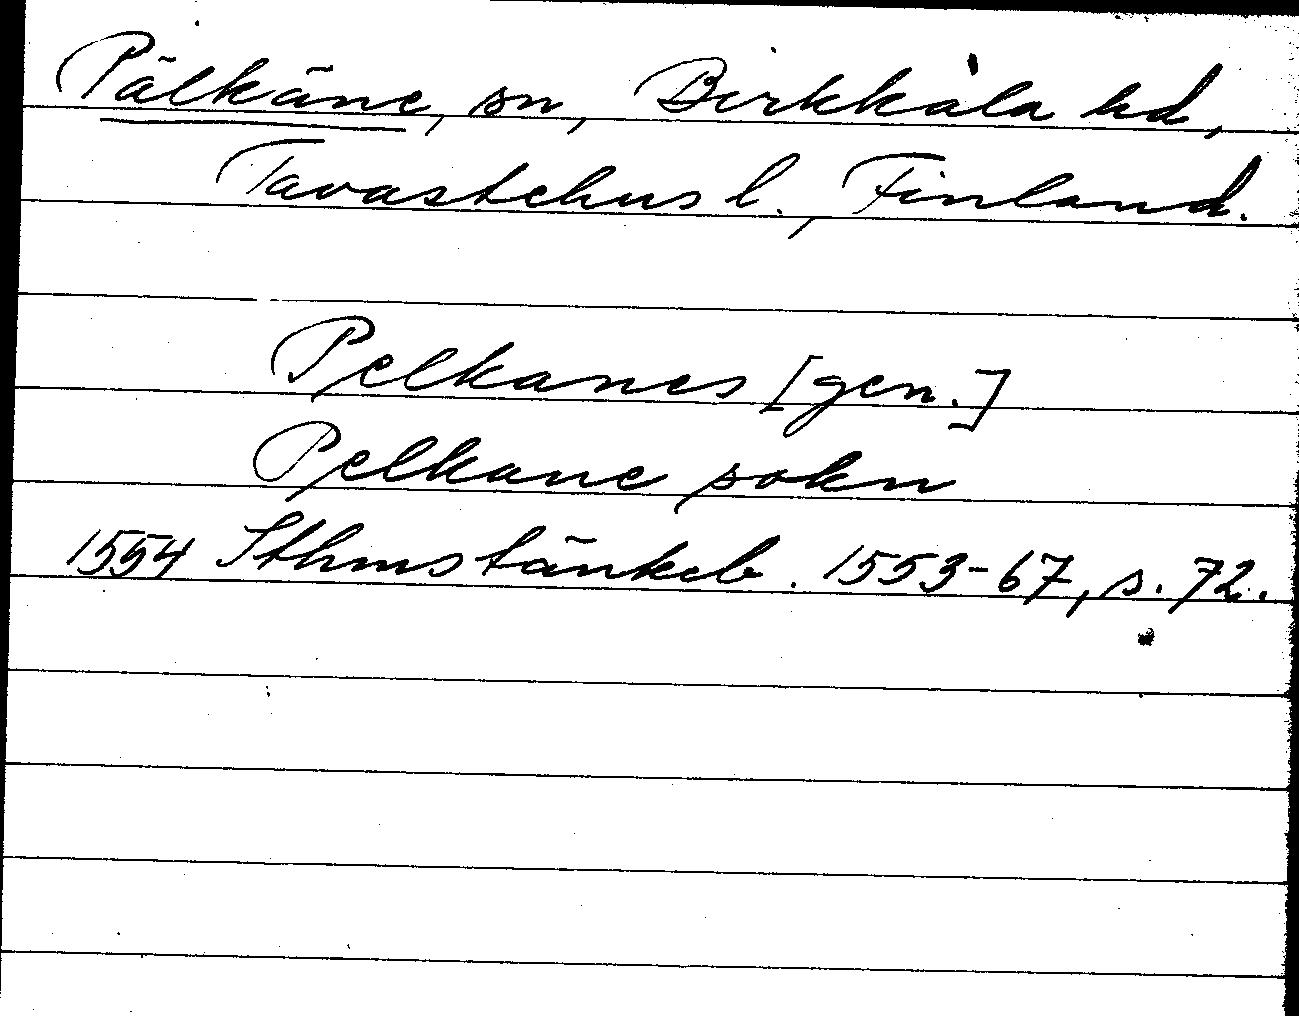 Pälkäne, sn, Birkkala hd,
Tavastehus l., Finland.
Pelkanes [gen.]
Pelkane sokn
1554 Sthms tänkeb. 1553-67, s. 72.